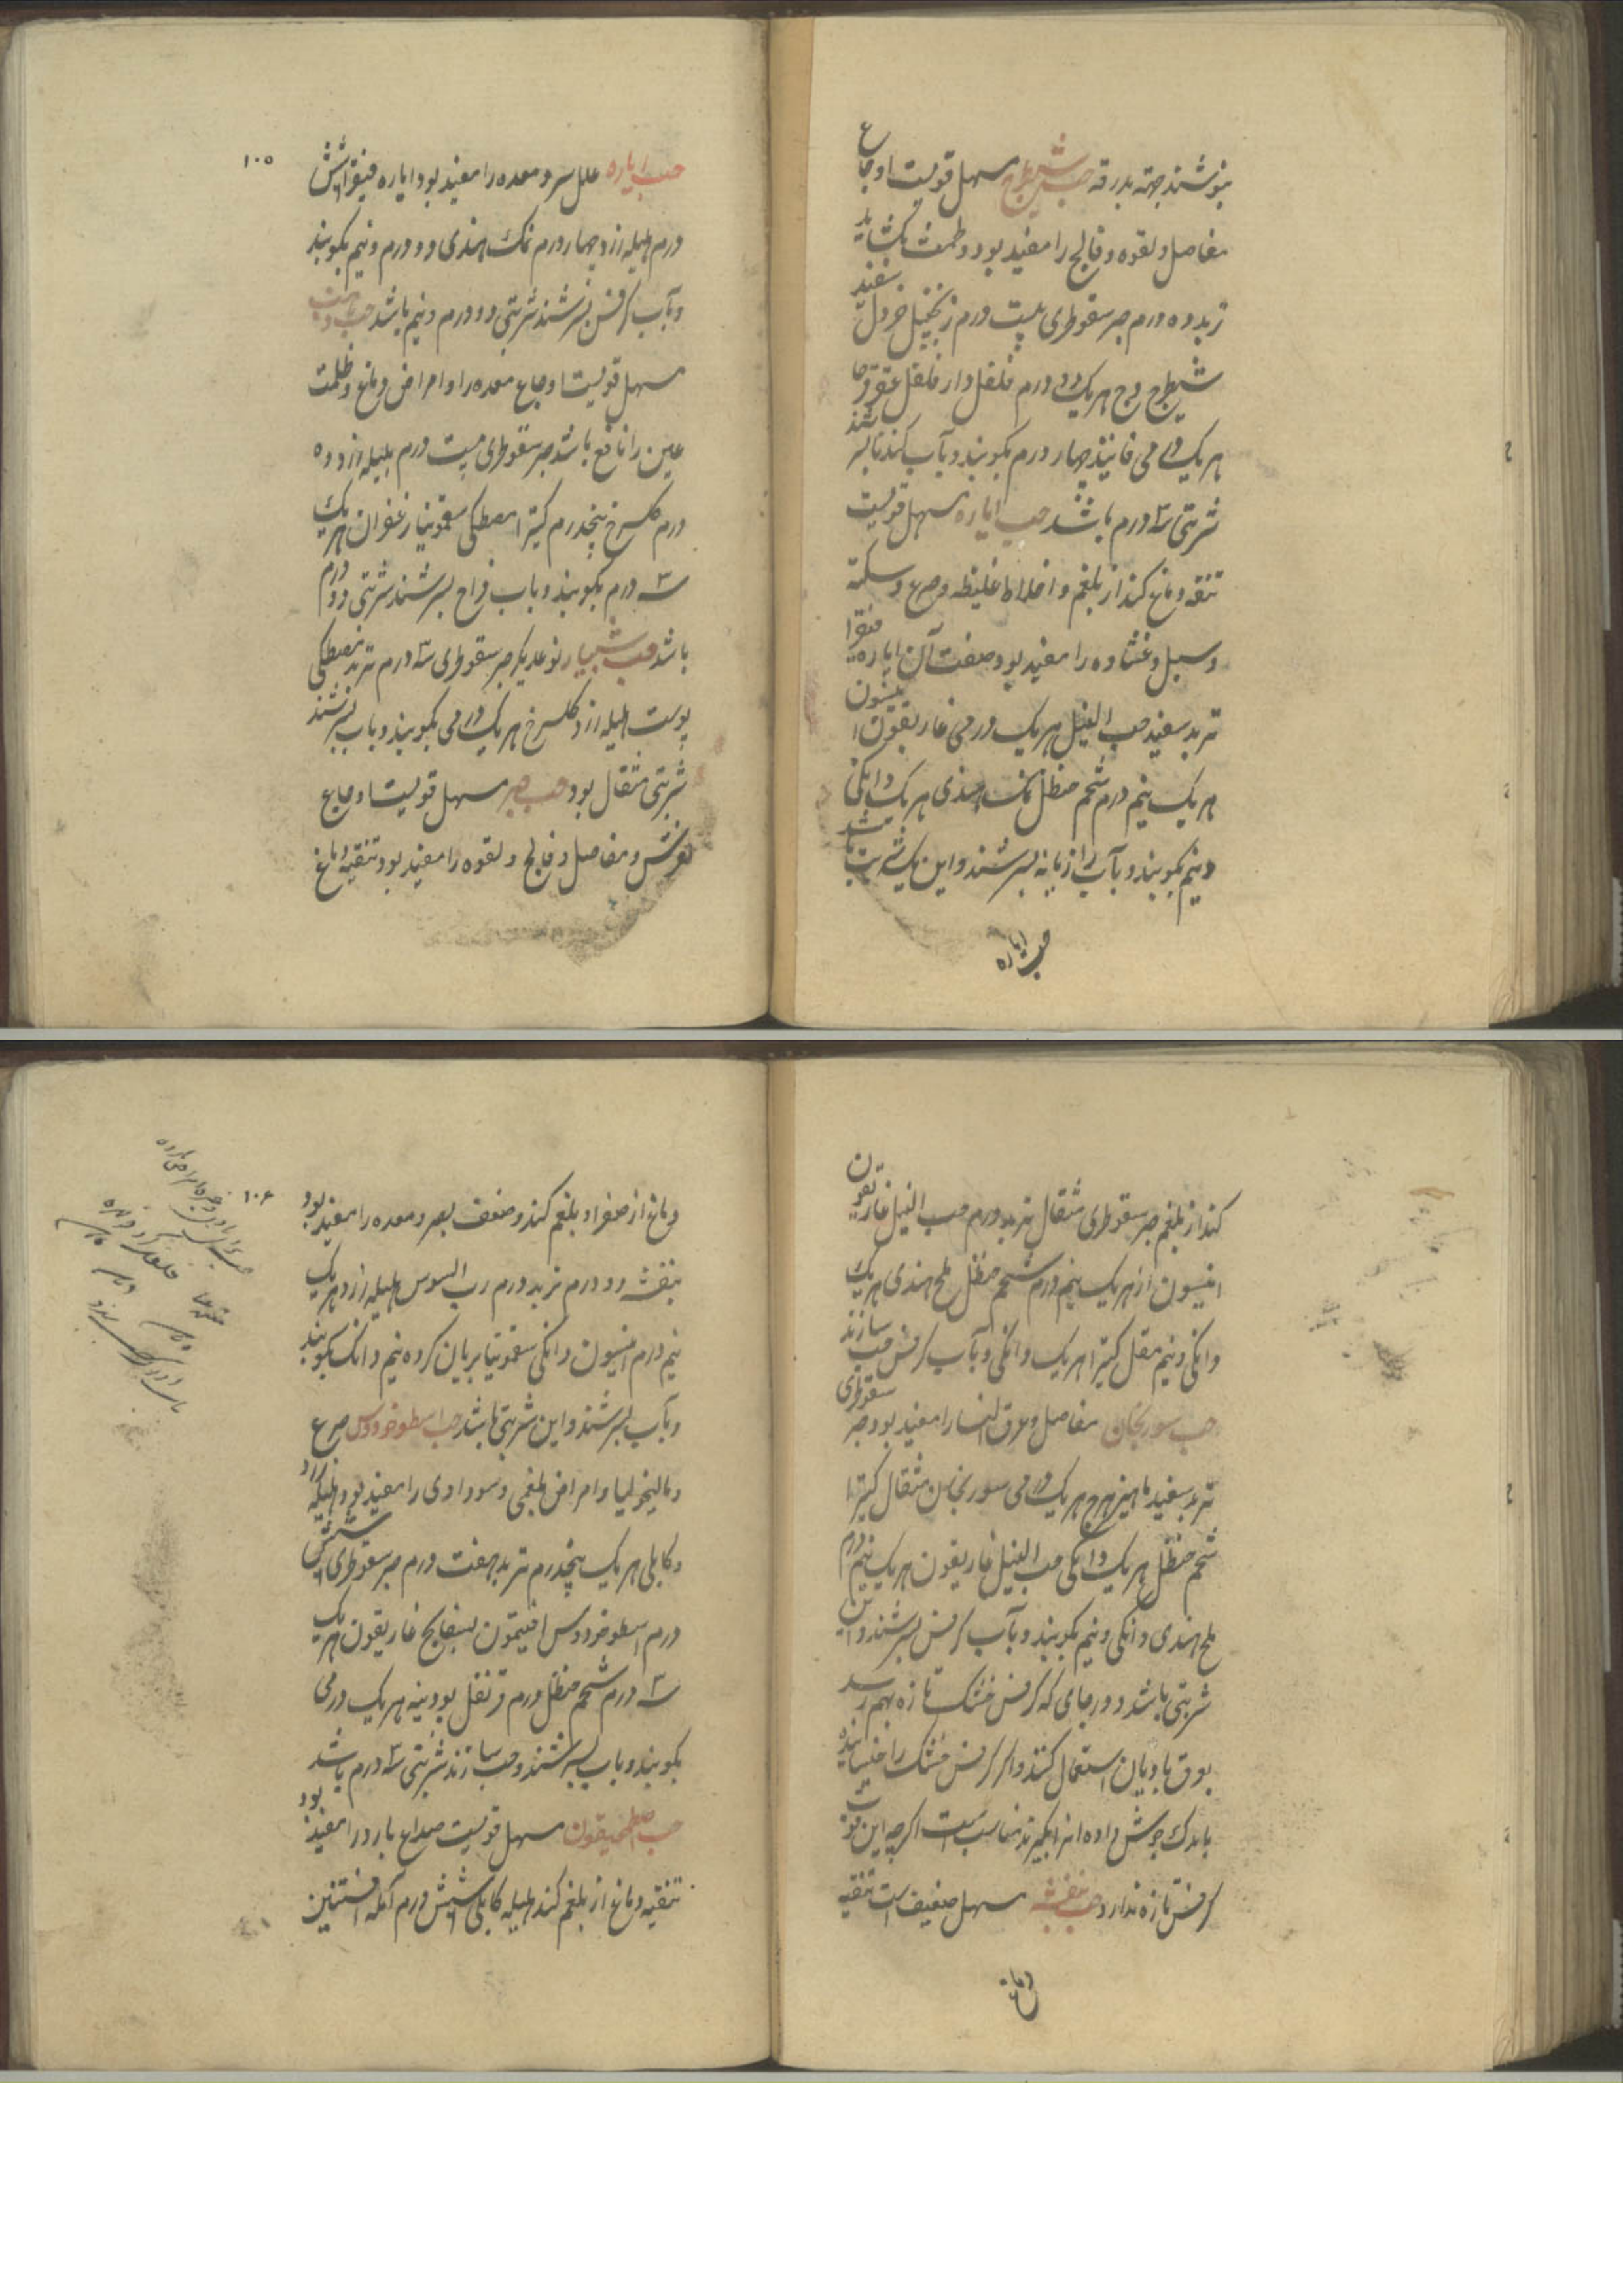 بنوشند جهته بدرقه حب شیطرج مسهل قویست اوجاع
مفاصل و لقوه و فالج را مفید بود و طمث بکشاید
تربد ده درم صبر سقوطری بیست درم زنجبیل خردل سفید
شیطرج وج هریک دو درم فلفل دار فلفل عقرقرحا
هریک درمی فانیذ چهار درم بکوبند و بآب کندنا بسرشند
شربتی ۳ درم باشد حب ایاره مسهل قویست
تنقه دماغ کند از بلغم و اخلاط غلیظه و صرع و سکته
و سبل و غشاوه را مفید بود صفت آن ایاره فیقرا
تربد سفید حب النیل هریک درمی غاریقون انیسون
هریک نیم درم شحم حنظل نمک هندی هریک دانکی
و نیم بکوبند و بآب رازیانه بسرشند و این یک شربت باشد
حب ایاره
۱۰۵
حب ایاره علل سر و معده را مفید بود ایاره فیقرا شش
درم هلیله زرد چهار درم نمک هندی دو درم و نیم بکوبند
و بآب کرفس بسرشند شربتی دو درم و نیم باشد حب ذهب
مسهل قویست اوجاع معده را و امراض دماغ و ظلمت
عین را نافع باشد صبر سقوطری بیست درم هلیله زرد ده
درم کلسرخ پنجدرم کتیرا مصطکی سقمونیا زعفران هریک
۳ درم بکوبند و باب قراح بسرشند شربتی دو درم
باشد حب شبیار نوعدیکر صبر سقوطری ۳ درم تربد مصطکی
پوست هلیله زرد کلسرخ هریک درمی بکوبند و باب بسرشند
شربتی مثقال بود حب صبر مسهل قویست اوجاع
نقرس و مفاصل و فالج و لقوه را مفید بود تنقیه دماغ
کند از بلغم صبر سقوطری مثقال تربد درم حب النیل غاریقون
انیسون از هریک نیم درم شحم حنظل ملح هندی هریک
دانکی و نیم مقل کتیرا هریک دانکی و بآب کرفس حب سازند
حب سورنجان مفاصل و عرق النسا را مفید بود صبر سقوطری
تربد سفید ماهیزهرج هریک درمی سورنجان مثقال کتیرا
شحم حنظل هریک دانکی حب النیل غاریقون هریک نیم درم
ملح هندی دانکی و نیم بکوبند و بآب کرفس بسرشند و این
شربتی باشد و در جای که کرفس خشک تازه بهم رسد
بعرق بادیان استعمال کنند و اکر کرفس خشک را خیسانیده
باندک جوش داده انرا بکیرند مناسب است اکرچه این قوت
کرفس تازه ندارد حب بنفشه مسهل ضعیف است تنقیه
دماغ
۱۰۶
دماغ از صفرا و بلغم کند و ضعف بصر و معده را مفید بود
بنفشه دو درم تربد درم رب السوس هلیله زرد هریک
نیم درم انیسون دانکی سقمونیا بریان کرده نیم دانک بکوبند
و بآب بسرشند و این شربتی باشد حب اسطوخودوس صرع
و مالیخولیا و امراض بلغمی و سوداوی را مفید بود هلیله زرد
و کابلی هریک پنجدرم تربد هفت درم صبر سقوطری شش
درم اسطوخودوس افتیمون بسفایج غاریقون هریک
۳ درم شحم حنظل درم قرنفل بودینه هریک درمی
بکوبند و باب بسرشند و حب سازند شربتی ۳ درم باشد
حب اصطمحیقون مسهل قویست صداع بارد را مفید بود
تنقیه دماغ از بلغم کند هلیله کابلی شش درم آمله افسنتین